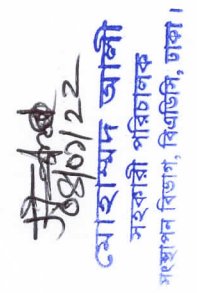 ০৪/০১/২২
মোহাম্মদ আলী
সহকারী পরিচালক
সংস্থাপন বিভাগ, বিএডিসি, ঢাকা।